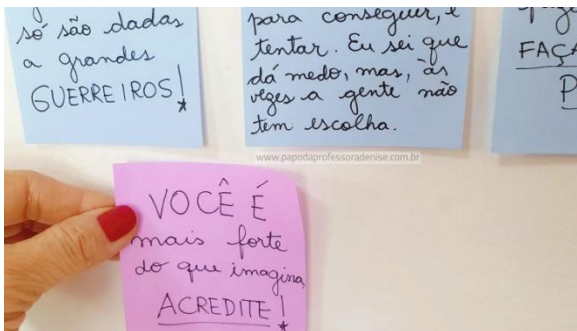 só são dadas
a grandes
GUERREIROS!
para conseguir, é
tentar. Eu sei que
dá medo, mas, às
vezes a gente não
tem escolha.
FAÇA
P
www.papodaprofessoradenise.com.br
VOCÊ É
mais forte
do que imagina
ACREDITE!